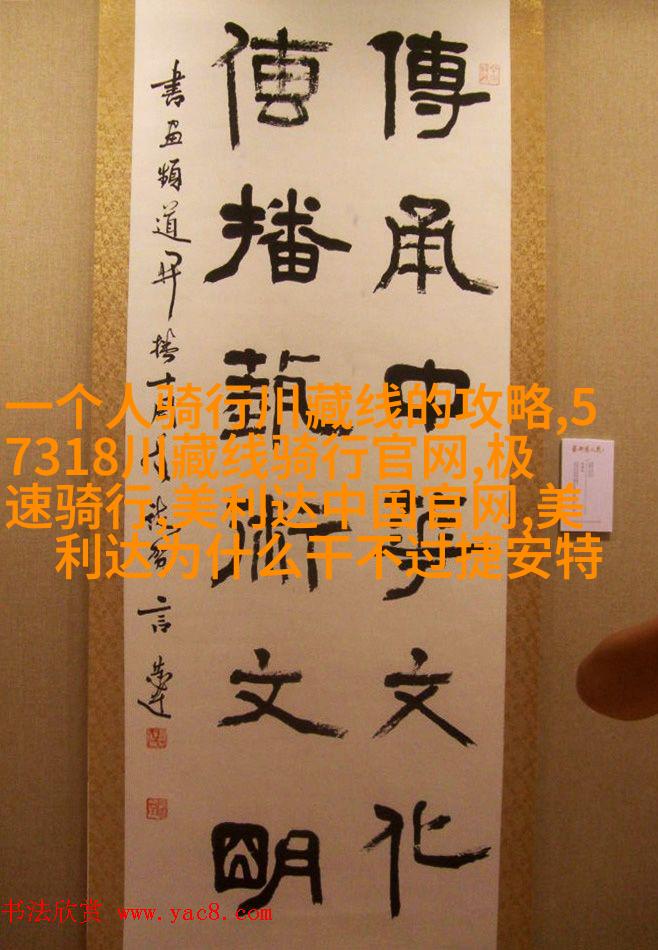 傳承中華文化
傳播藝術文明
書画頻道开播十周年
言恭達
一个人骑行川藏线的攻略,5
7318川藏线骑行官网,极
速骑行,美利达中国官网,美
利达为什么干不过捷安特
书法欣赏 www.yac8.com